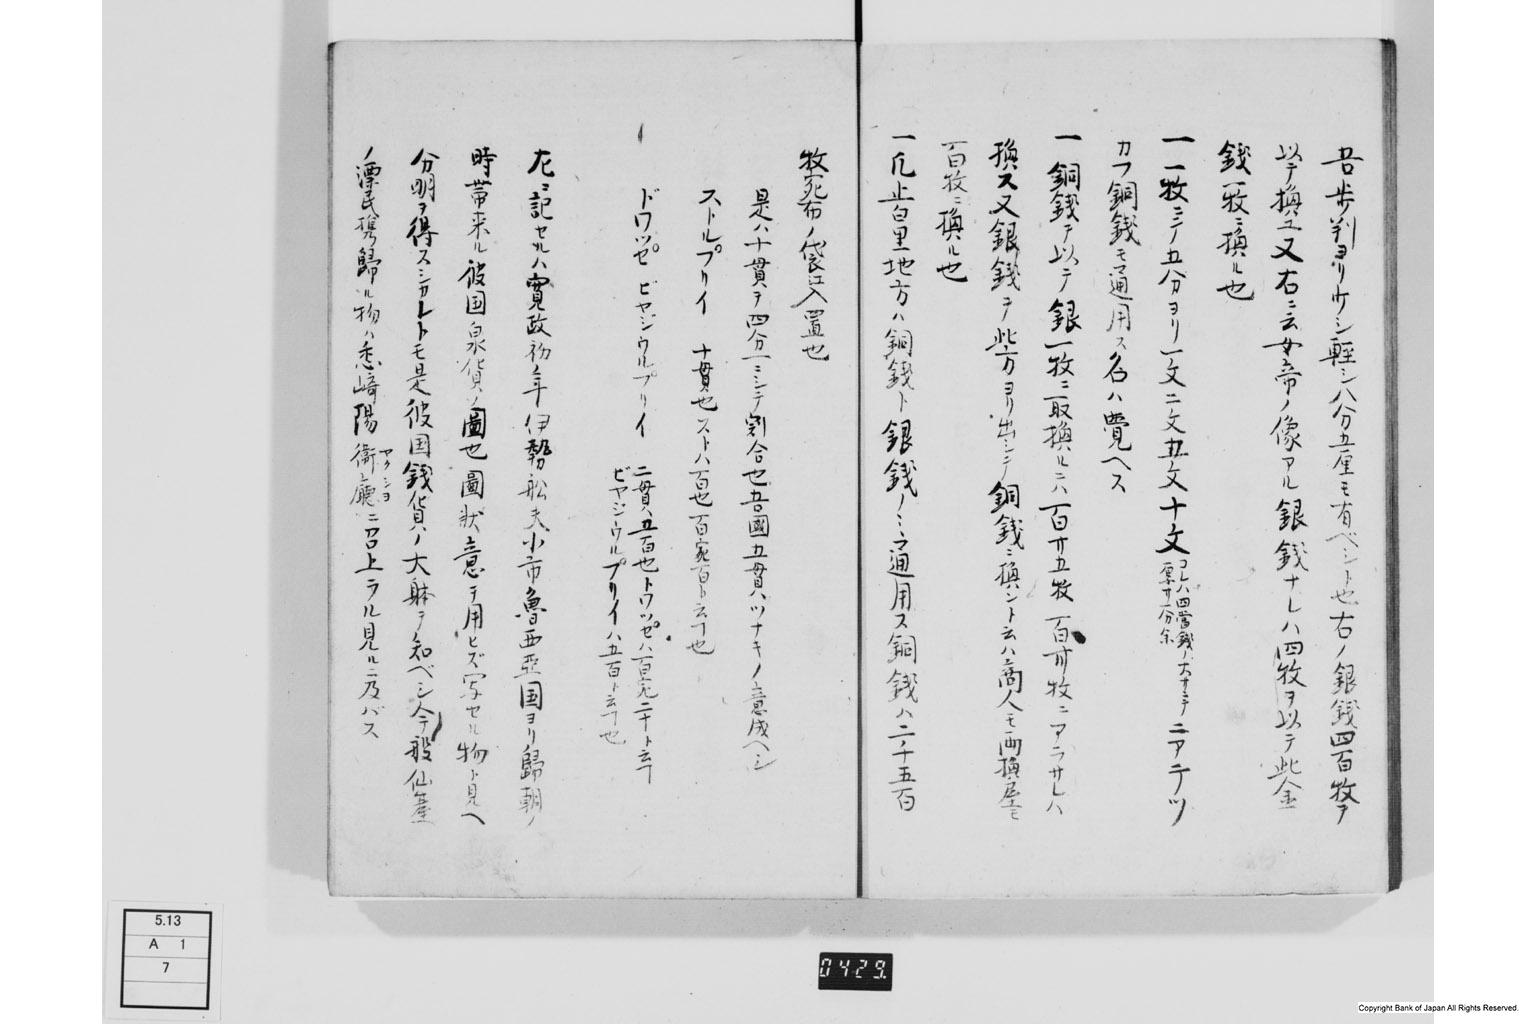 吾歩判ヨリ少シ軽シ八分五厘モ有ベシト也右ノ銀銭四百牧ヲ
以テ換エ又右ニ云女帝ノ像アル銀銭ナレハ四牧ヲ以テ此金
銭一牧ニ換ル也
一 一牧ニテ五分ヨリ一文二文五文十文 コレハ四當銭ノ大サニテ ニアテツ
カフ銅銭モ通用ス名ハ覺ヘス
一 銅銭ヲ以テ銀一牧ニ取換ルニハ百廿五牧百卅牧ニアラサレハ
換ス又銀銭ヲ此方ヨリ出シテ銅銭ニ換ント云ハ商人モ両換屋モ
百牧ニ換ル也
一 凡止白里地方ハ銅銭ト銀銭ノミ通用ス銅銭ハ二千五百
牧宛布ノ袋江入置也
是ハ十貫ヲ四分一ニシテ割合也吾國五貫ハツナキノ意成ヘシ
ストルプリイ 十貫也ストハ百也百宛百ト云フ也
ドワツゼ ビヤジウルプリイ 二貫五百也トワツゼハ百宛二十ト云フ
ビヤジウルプリイハ五百ト云フ也
左ニ記セルハ寛政初ノ年伊勢舩夫小市魯西亜国ヨリ歸朝ノ
時帯来ル彼国泉貨ノ圖也圖状意テ用ヒズ写セル物ト見ヘ
分明ヲ得スシカレトモ是彼国銭貨ノ大躰ヲ知ベシ今般仙臺
ノ漂民携歸ル物ハ悉崎陽衞廳ニ召上ラル見ルニ及バス
ヤクシヨ
5.13
A 1
7
0429
Copyright Bank of Japan All Rights Reserved.